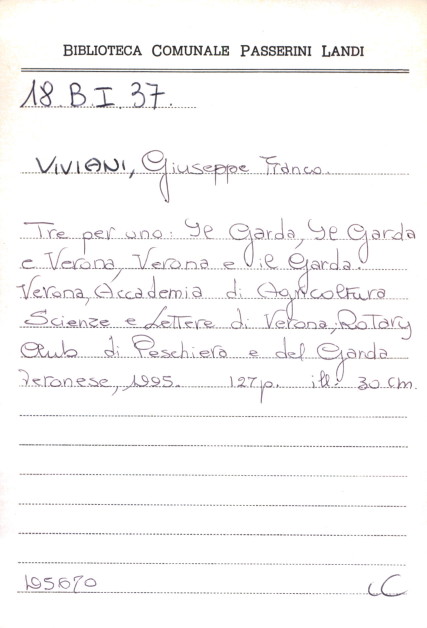 BIBLIOTECA COMUNALE PASSERINI LANDI
18.B.I.37.
VIVIANI, Giuseppe Franco.
Tre per uno: Il Garda, Il Garda
e Verona, Verona e il Garda.
Verona, Accademia di Agricoltura
Scienze e Lettere di Verona; Rotary
Club di Peschiera e del Garda
Veronese, 1995. 127p. ill. 30 cm.
195670